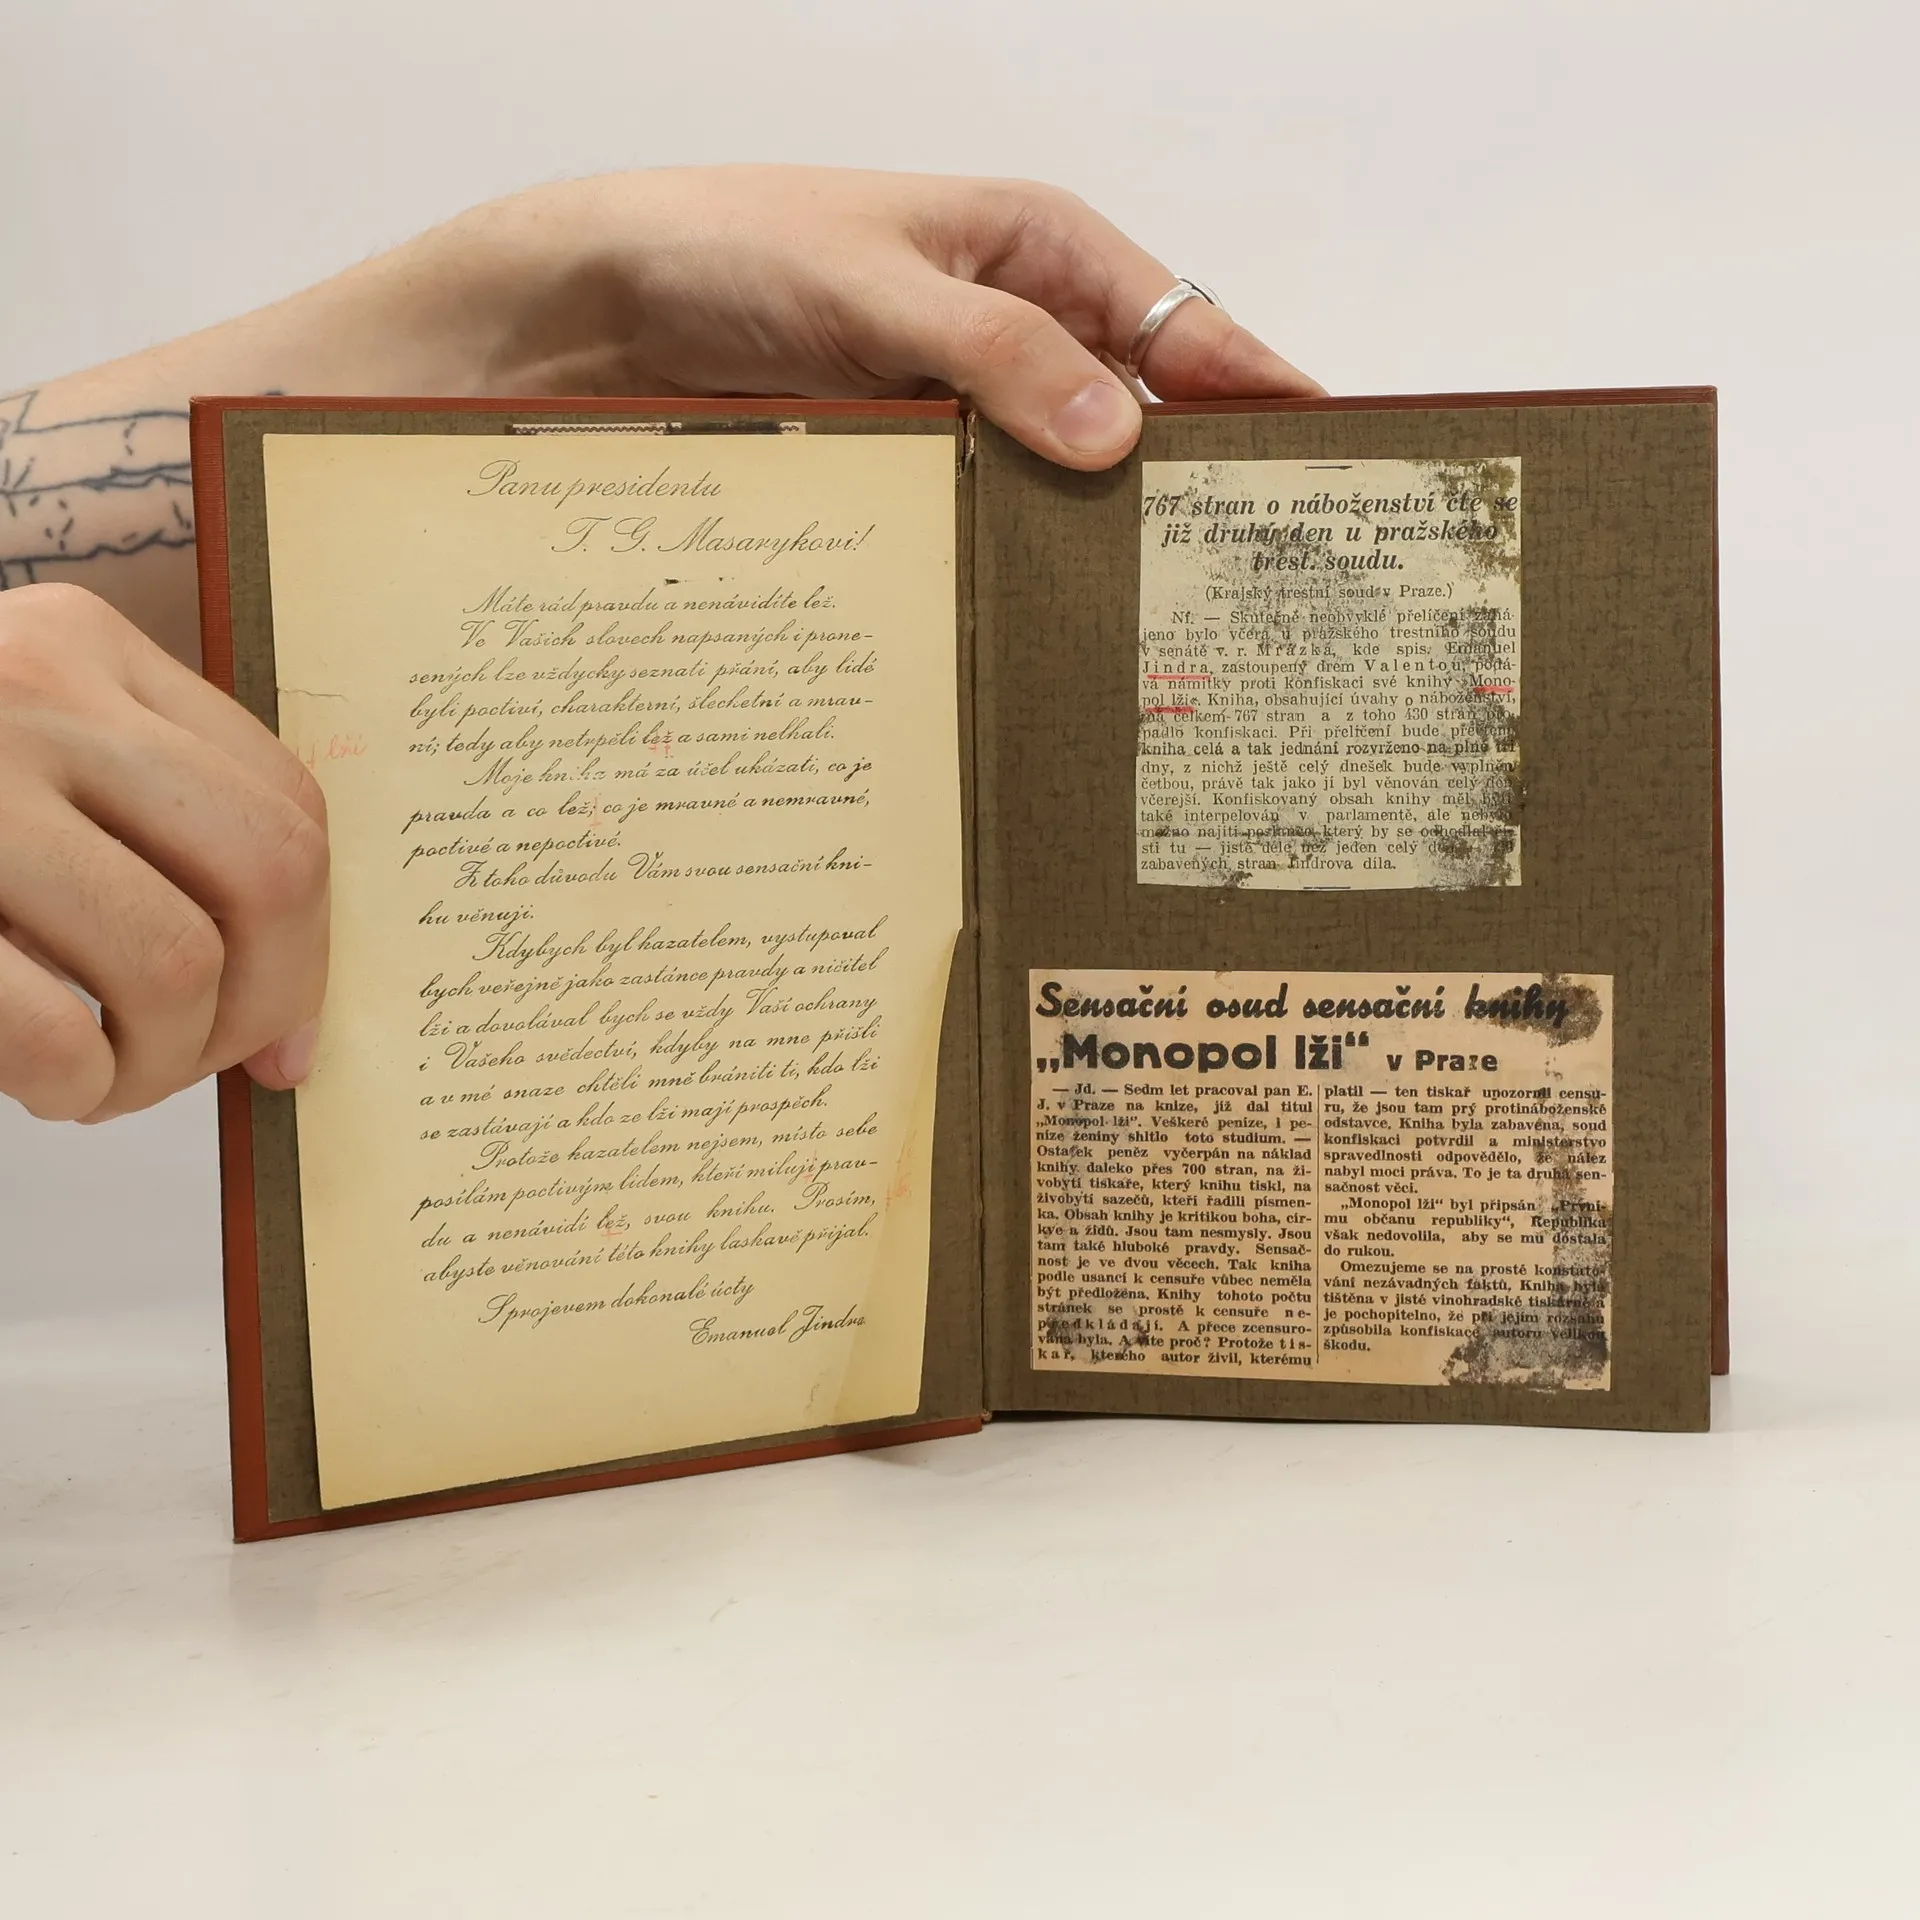 Panu presidentu
T. G. Masarykovi!
Máte rád pravdu a nenávidíte lež.
Ve Vašich slovech napsaných i prone-
sených lze vždycky seznati přání, aby lidé
byli poctiví, charakterní, šlechetní a mrav-
ní; tedy aby netrpěli lež a sami nelhali.
Moje kniha má za účel ukázati, co je
pravda a co lež; co je mravné a nemravné,
poctivé a nepoctivé.
Z toho důvodu Vám svou sensační kni-
hu věnuji.
Kdybych byl kazatelem, vystupoval
bych veřejně jako zastánce pravdy a ničitel
lži a dovolával bych se vždy Vaší ochrany
i Vašeho svědectví, kdyby na mne přišli
a v mé snaze chtěli mně brániti ti, kdo lži
se zastávají a kdo ze lži mají prospěch.
Protože kazatelem nejsem, místo sebe
posílám poctivým lidem, kteří milují prav-
du a nenávidí lež, svou knihu. Prosím,
abyste věnování této knihy laskavě přijal.
S projevem dokonalé úcty
Emanuel Jindra
lži
767 stran o náboženství čte se
již druhý den u pražského
trest. soudu.
(Krajský trestní soud v Praze.)
Nf. — Skutečně neobvyklé přelíčení zahá-
jeno bylo včera u pražského trestního soudu
v senátě v. r. Mrázka, kde spis. Emanuel
Jindra, zastoupený drem Valentou, podá-
vá námitky proti konfiskaci své knihy »Mono-
pol lži«. Kniha, obsahující úvahy o náboženství,
má celkem 767 stran a z toho 430 stran pro-
padlo konfiskaci. Při přelíčení bude přečtena
kniha celá a tak jednání rozvrženo na plné tři
dny, z nichž ještě celý dnešek bude vyplněn
četbou, právě tak jako jí byl věnován celý den
včerejší. Konfiskovaný obsah knihy měl býti
také interpelován v parlamentě, ale nebylo
možno najíti poslance, který by se odhodlal čí-
sti tu — jistě déle než jeden celý
zabavených stran Jindrova díla.
Sensační osud sensační knihy
„Monopol lži“ v Praze
— Jd. — Sedm let pracoval pan E.
J. v Praze na knize, jíž dal titul
„Monopol lži“. Veškeré peníze, i pe-
níze ženiny shltlo toto studium. —
Ostatek peněz vyčerpán na náklad
knihy daleko přes 700 stran, na ži-
vobytí tiskaře, který knihu tiskl, na
živobytí sazečů, kteří řadili písmen-
ka. Obsah knihy je kritikou boha, cír-
kve a židů. Jsou tam nesmysly. Jsou
tam také hluboké pravdy. Sensač-
nost je ve dvou věcech. Tak kniha
podle usancí k censuře vůbec neměla
být předložena. Knihy tohoto počtu
stránek se prostě k censuře ne-
předkládají. A přece zcensuro-
vána byla. A víte proč? Protože tis-
kař, kterého autor živil, kterému
platil — ten tiskař upozornil censu-
ru, že jsou tam prý protináboženské
odstavce. Kniha byla zabavena, soud
konfiskaci potvrdil a ministerstvo
spravedlnosti odpovědělo, že nález
nabyl moci práva. To je ta druhá sen-
sačnost věci.
„Monopol lži“ byl připsán „Prvni-
mu občanu republiky“, Republika
však nedovolila, aby se mu dostala
do rukou.
Omezujeme se na prosté konstato-
vání nezávadných faktů, Kniha byla
tištěna v jisté vinohradské tiskárně a
je pochopitelno, že při jejím rozsahu
způsobila konfiskace autoru velikou
škodu.